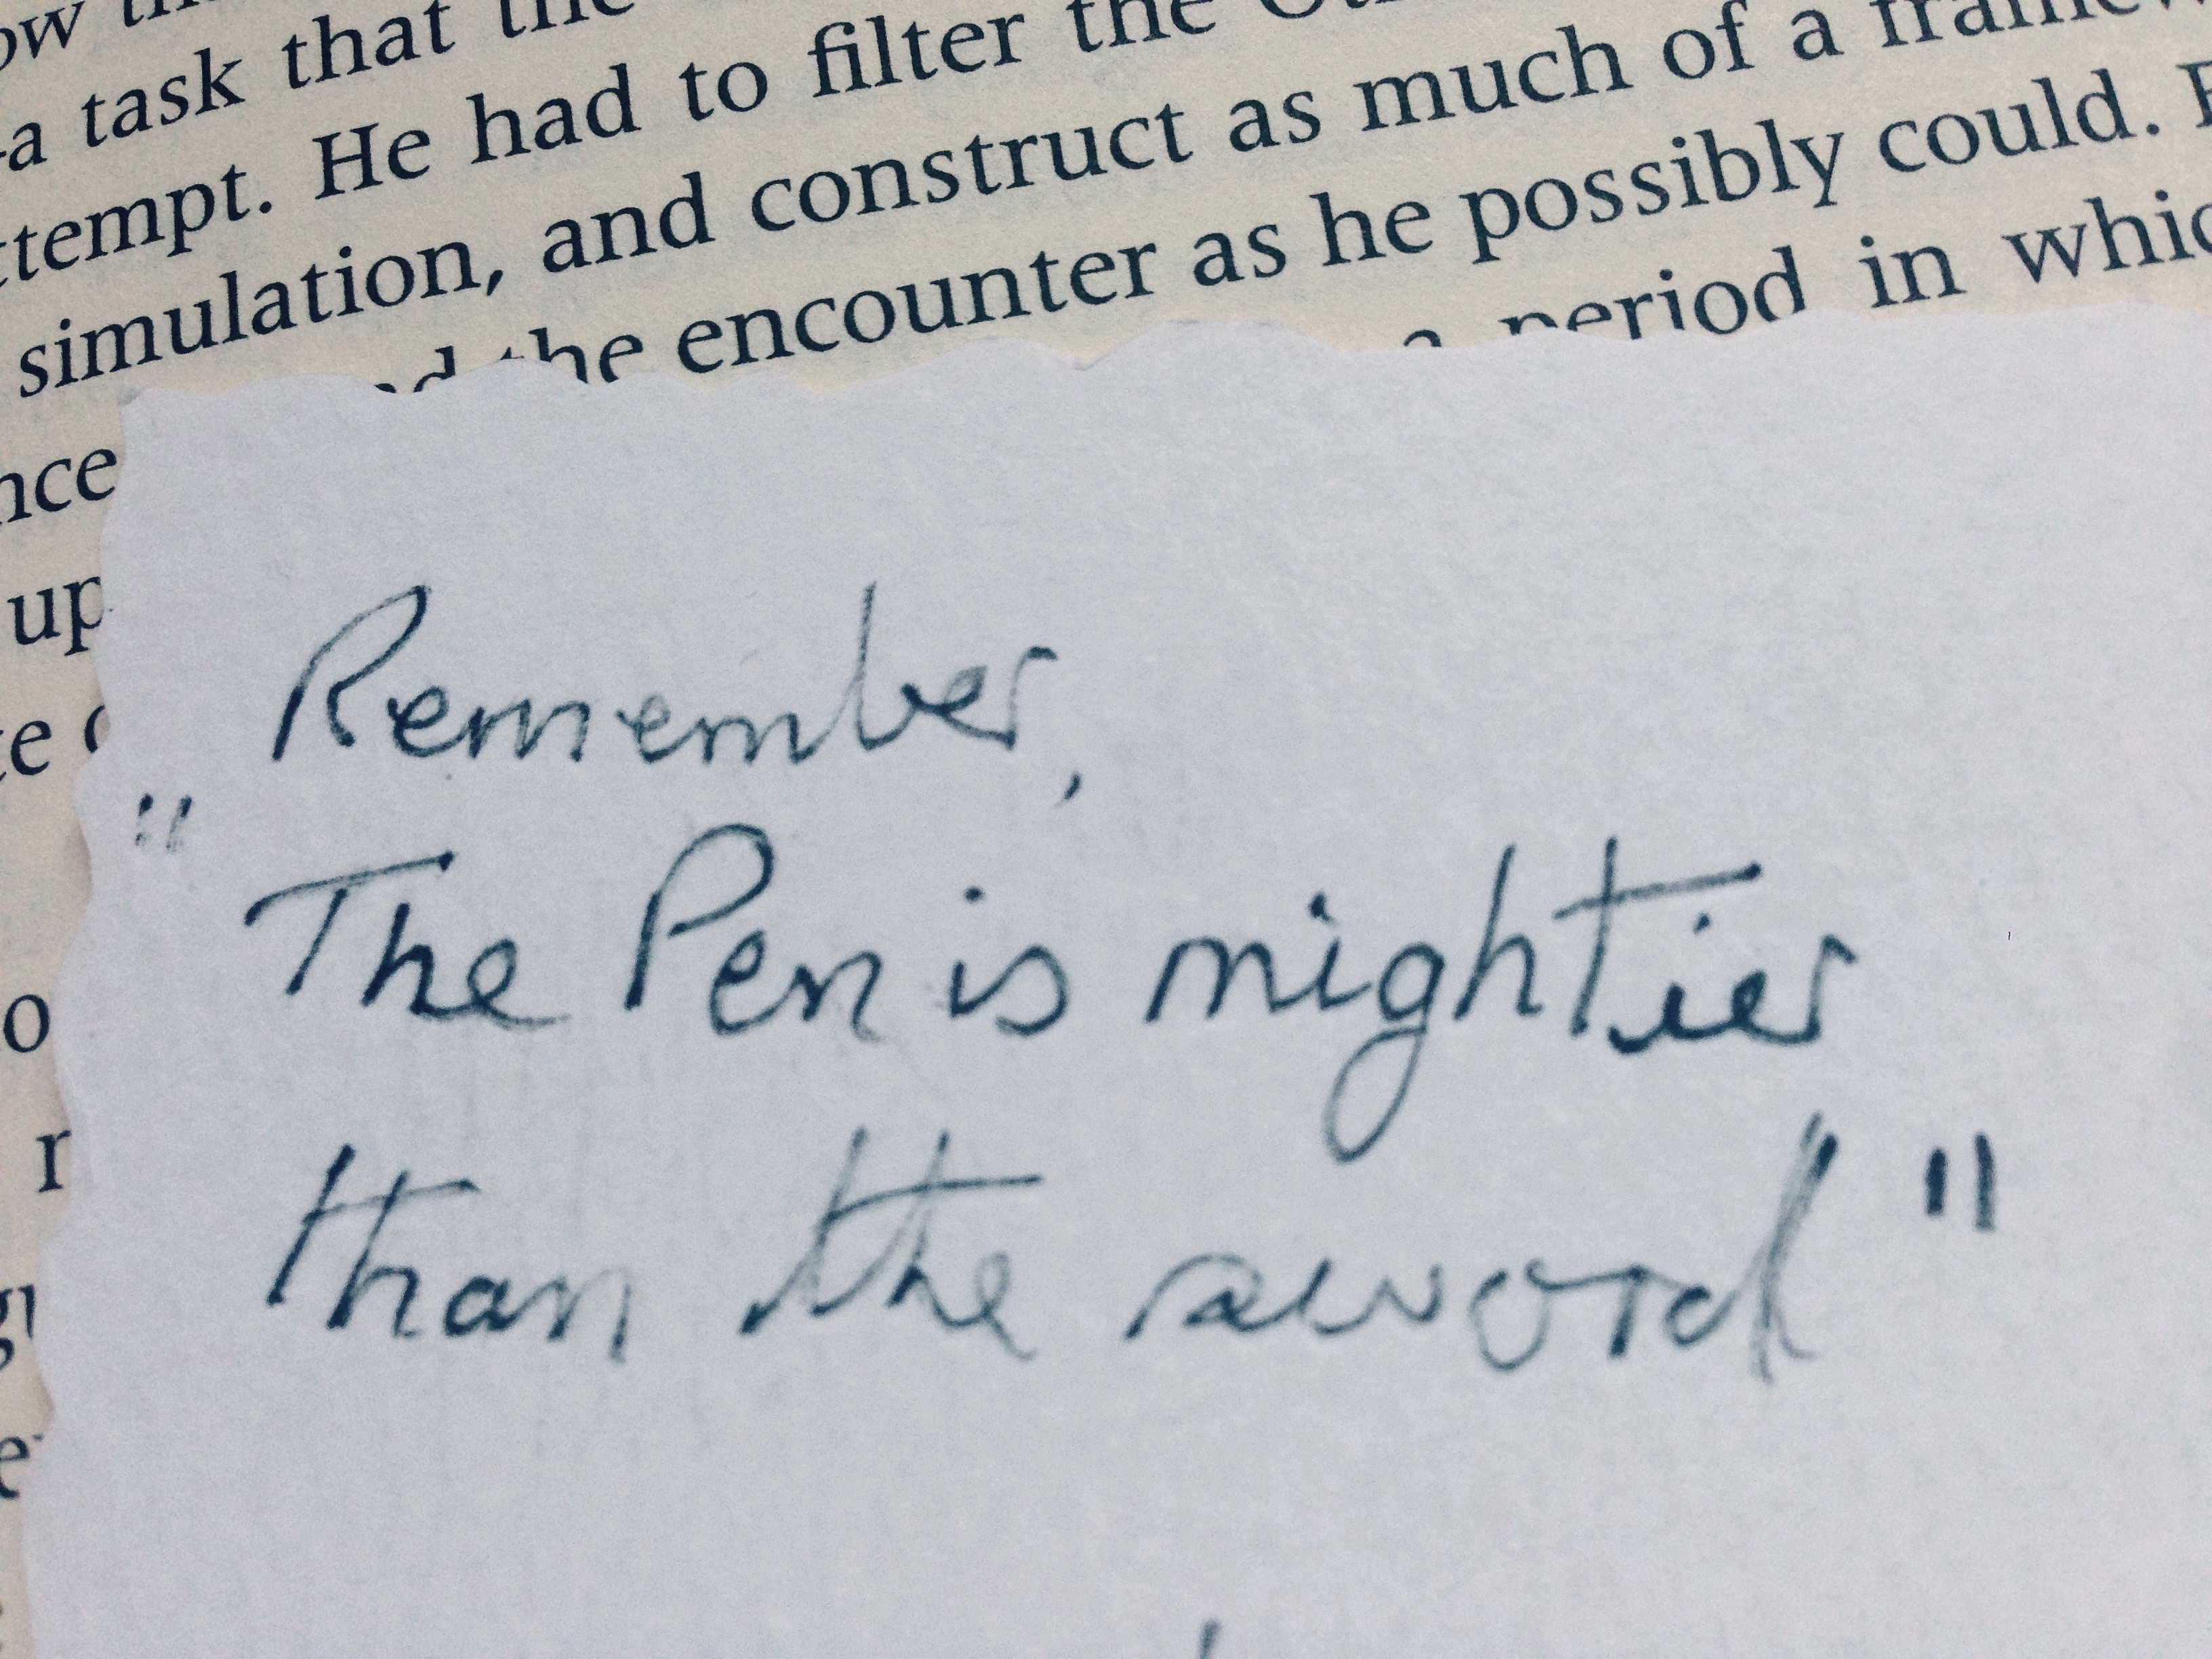 a task that the
He had to filter the
simulation, and construct as much of a
the encounter as he possibly could.
period in
up
Remember,
"The Pen is mightier
than the sword"